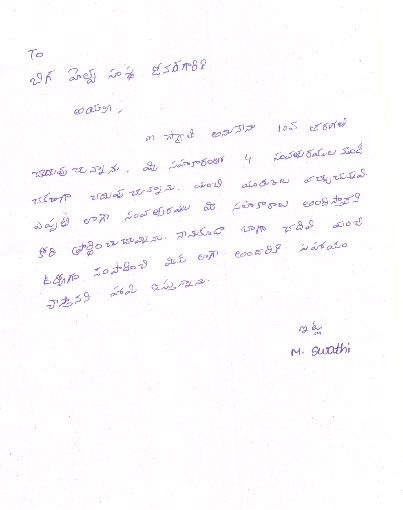 To
బిగ్ హెల్ప్ సంస్థ
అయ్యా,
M స్వాతి అనునేను 10వ తరగతి
చదువుచున్నాను. మీ సహకారంతో 4 సంవత్సరముల నుండి
చక్కగా చదువుచున్నాను. మంచి మార్కులు
ఎప్పటి లాగా సంవత్సరము మీ సహకారాలు
కోరి ప్రార్థించుచున్నాను. బాగా చదివి మంచి
ఉద్యోగం సంపాదించి మీకు లాగా అందరికి సహాయం
చేస్తానని హామి ఇస్తున్నాను.
ఇట్లు
M. Swathi